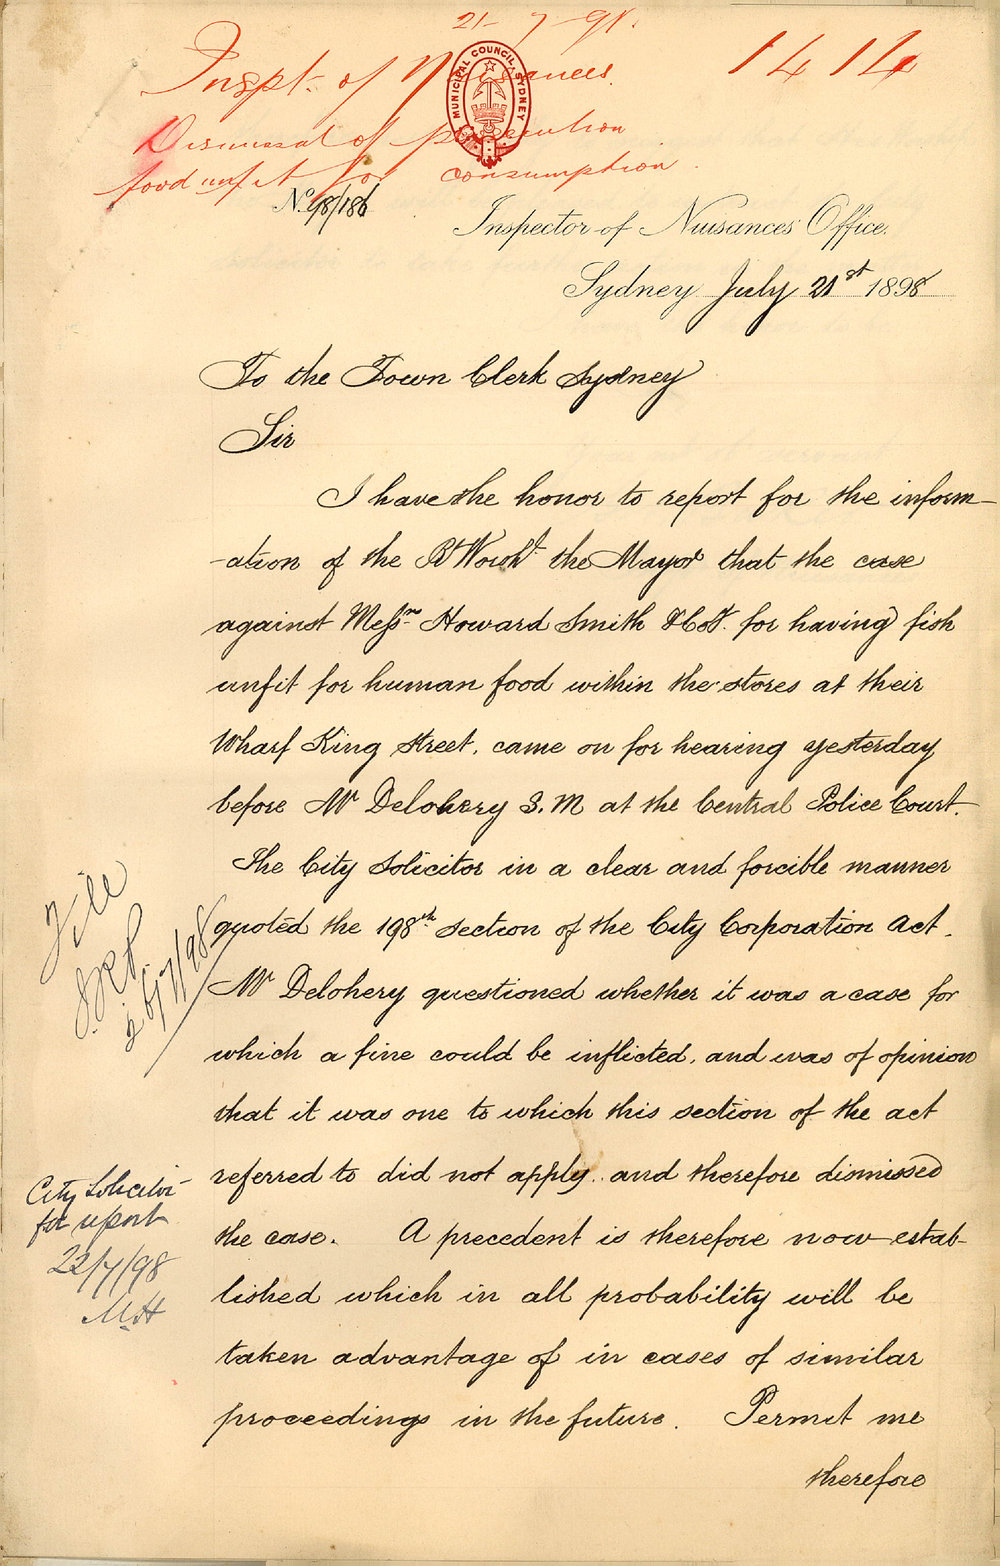 21-7-98.
Inspt. of Nuisances. 1414
MUNICIPAL COUNCIL, SYDNEY
Dismissal of prosecution
food unfit for consumption.
No. 98/186
Inspector of Nuisances' Office.
Sydney July 21st 1898
To the Town Clerk Sydney
Sir
I have the honor to report for the inform-
-ation of the Rt Worshl the Mayor that the case
against Messrs Howard Smith & Co. for having fish
unfit for human food within the stores at their
Wharf King Street, came on for hearing yesterday
before Mr Delohery S.M at the Central Police Court.
The City Solicitor in a clear and forcible manner
quoted the 198th section of the City Corporation Act.
Mr Delohery questioned whether it was a case for
which a fine could be inflicted, and was of opinion
that it was one to which this section of the act
referred to did not apply, and therefore dismissed
the case. A precedent is therefore now estab-
lished which in all probability will be
taken advantage of in cases of similar
proceedings in the future. Permit me
therefore
File
26/7/98
City Solicitor
for report
22/7/98
M.H